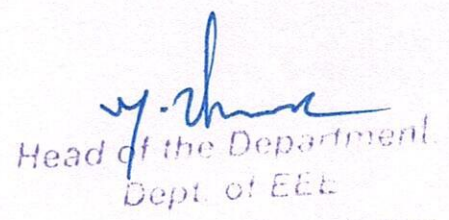 Head of the Department
Dept. of EEE